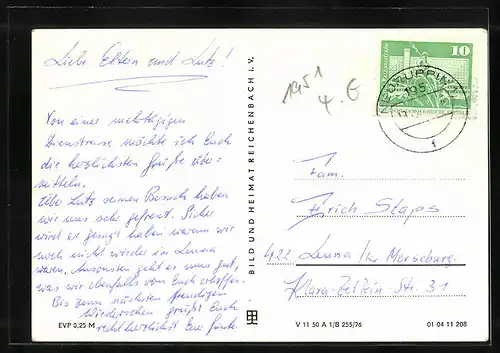 Liebe Eltern und Lutz!
Von einer mehrtägigen
Dienstreise möchte ich Euch
die herzlichsten Grüße über-
mitteln.
Über Lutz seinen Besuch haben
wir uns sehr gefreut. Sicher
wird er gesagt haben warum wir
noch nicht wieder in Leuna
waren. Ansonsten geht es uns gut,
was wir ebenfalls von Euch erhoffen.
Bis zum nächsten freudigen
Wiedersehen grüßt Euch
recht herzlichst Eure
EVP 0,25 M
BILD UND HEIMAT REICHENBACH i. V.
1951
10
NEURUPPIN 1
195
f
Fam.
Erich Staps
422 Leuna Krs Merseburg
Klara-Zetkin-Str. 31
V 11 50 A 1/B 255/76
01 04 11 208